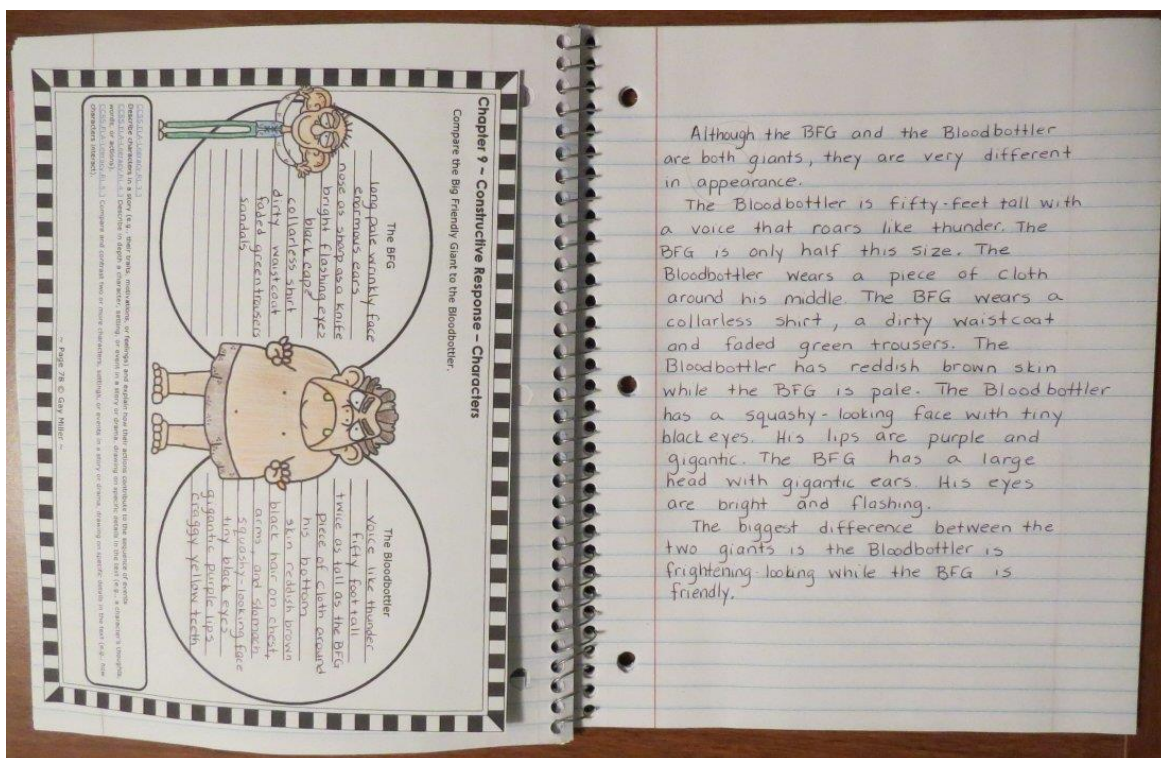 Chapter 9 ~ Constructive Response – Characters
Compare the Big Friendly Giant to the Bloodbottler.
The BFG
long pale wrinkly face
enormous ears
nose as sharp as a knife
bright flashing eyes
black cape
collarless shirt
dirty waistcoat
faded green trousers
sandals
The Bloodbottler
voice like thunder
fifty foot tall
twice as tall as the BFG
piece of cloth around
his bottom
skin reddish brown
black hair on chest,
arms, and stomach
squashy-looking face
tiny black eyes
gigantic purple lips
craggy yellow teeth
Describe characters in a story (e.g., their traits, motivations, or feelings) and explain how their actions contribute to the sequence of events
Describe in depth a character, setting, or event in a story or drama, drawing on specific details in the text (e.g., a character's thoughts,
words, or actions).
Compare and contrast two or more characters, settings, or events in a story or drama, drawing on specific details in the text (e.g., how
characters interact).
~ Page 78 © Gay Miller ~
Although the BFG and the Bloodbottler
are both giants, they are very different
in appearance.
The Bloodbottler is fifty-feet tall with
a voice that roars like thunder. The
BFG is only half this size. The
Bloodbottler wears a piece of cloth
around his middle. The BFG wears a
collarless shirt, a dirty waistcoat
and faded green trousers. The
Bloodbottler has reddish brown skin
while the BFG is pale. The Bloodbottler
has a squashy-looking face with tiny
black eyes. His lips are purple and
gigantic. The BFG has a large
head with gigantic ears. His eyes
are bright and flashing.
The biggest difference between the
two giants is the Bloodbottler is
frightening-looking while the BFG is
friendly.